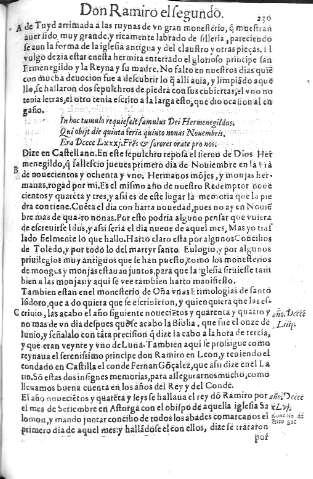 Don Ramiro el segundo. 230
A de Tuyd arrimada a las ruynas de vn gran monesterio, q̃ muestran
auer sido muy grande, y ricamente labrado de silleria, pareciendo
se aun la forma de la iglesia antigua y del claustro y otras pieças. El
vulgo dezia estar en esta hermita enterrado el glorioso principe san
Ermenegildo y la Reyna su madre. No falto en nuestros dias quiẽ
con mucha deuocion fue a descubrir lo q̃ alli auia, y limpiado aque
llo, se hallaron dos sepulchros de piedra con sus cubiertas, el vno no
tenia letras, el otro tenia escrito a la larga esto, que dio ocasion al en
gaño.
In hoc tumulo requiescit famulus Dei Hermenegildus.
Qui obijt die quinta feria quinto nonas Nouembris.
Era Dcccc Lxxxj. Frẽs & sorores orate pro nos.
Dize en Castellano. En este sepulchro reposa el sieruo de Dios Her
menegildo, q̃ fallescio jueues primero dia de Nouiembre en la Era
B de nouecientos y ochenta y vno, Hermanos mõjes, y monjas her-
manas, rogad por mi. Es el mismo año de nuestro Redemptor noue
cientos y quarẽta y tres, y assi es de este lugar la memoria que la pie
dra contiene. Cuẽta el dia con harta nouedad, pues no ay en Nouiẽ
bre mas de quatro nonas. Por esto podria alguno pensar que vuiera
de escreuirse Idus, y assi seria el dia nueue de aquel mes, Mas yo tras
lado fielmente lo que hallo. Harto claro esta por algunos Concilios
de Toledo, y por todo lo del martyr santo Eulogio, y por algunos
priuilegios muy antiguos que se han puesto, como los monesterios
de monges y monjas estauan juntos, para que la iglesia siruiesse tam
bien a las monjas: y aqui se vee tambien harto manifesto.
Tambien estan en el monesterio de Oña vnas Etimologias de santo
Isidoro, que a do quiera que se escriuieron, y quien quiera que las es-
C criuio, las acabo el año siguiente nouecientos y quarenta y quatro y año, Dccc
no mas de vn dia despues que se acabo la Biblia, que fue el onze de Liiij.
Iunio, y señalolo con tãta precision q̃ dize la cabo a la hora de tercia,
y que eran veynte y vno de Luna. Tambien aqui se prosigue como
reynaua el serenissimo principe don Ramiro en Leon, y teniendo el
condado en Castilla el conde Fernan Gõçalez, que assi dize en el La
tin. Sõ estas dos insignes memorias, para assegurarnos mucho, como
lleuamos buena cuenta en los años del Rey y del Conde.
El año nouecietos y quarẽta y seys se hallaua el rey dõ Ramiro por año, Dccc
el mes de Setiembre en Astorga con el obispo de aquella iglesia Sa xLvj.
lomon, y mando juntar concilio de todos los abades comarcanos el
primero dia de aquel mes: y hallãdose el con ellos, dize se trataron
por